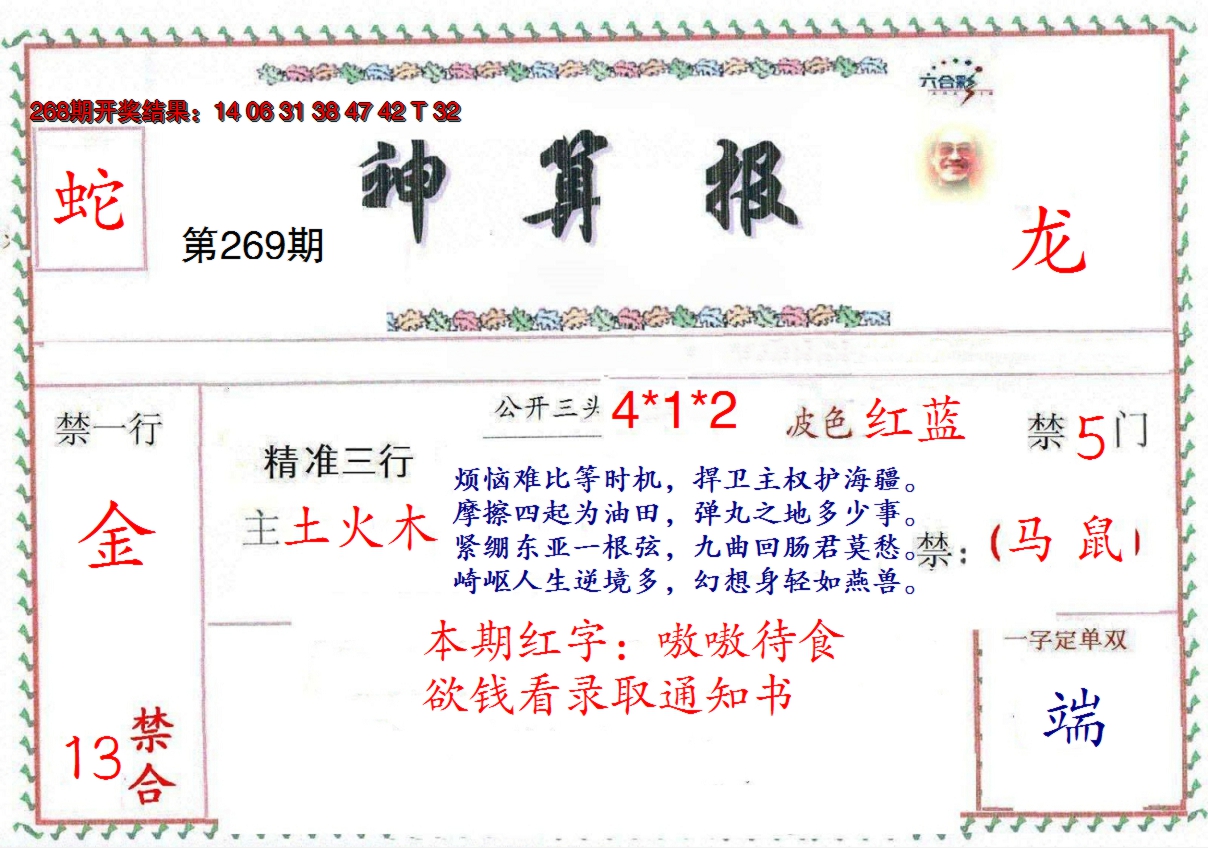 六合彩
268期开奖结果：14 06 31 38 47 42 T 32
神算报
蛇
第269期
龙
公开三头 4*1*2
波色 红蓝
禁5门
禁一行
金
精准三行
主土火木
烦恼难比等时机，捍卫主权护海疆。
摩擦四起为油田，弹丸之地多少事。
紧绷东亚一根弦，九曲回肠君莫愁。
崎岖人生逆境多，幻想身轻如燕兽。
禁：(马 鼠)
本期红字：嗷嗷待食
欲钱看录取通知书
一字定单双
端
13禁合